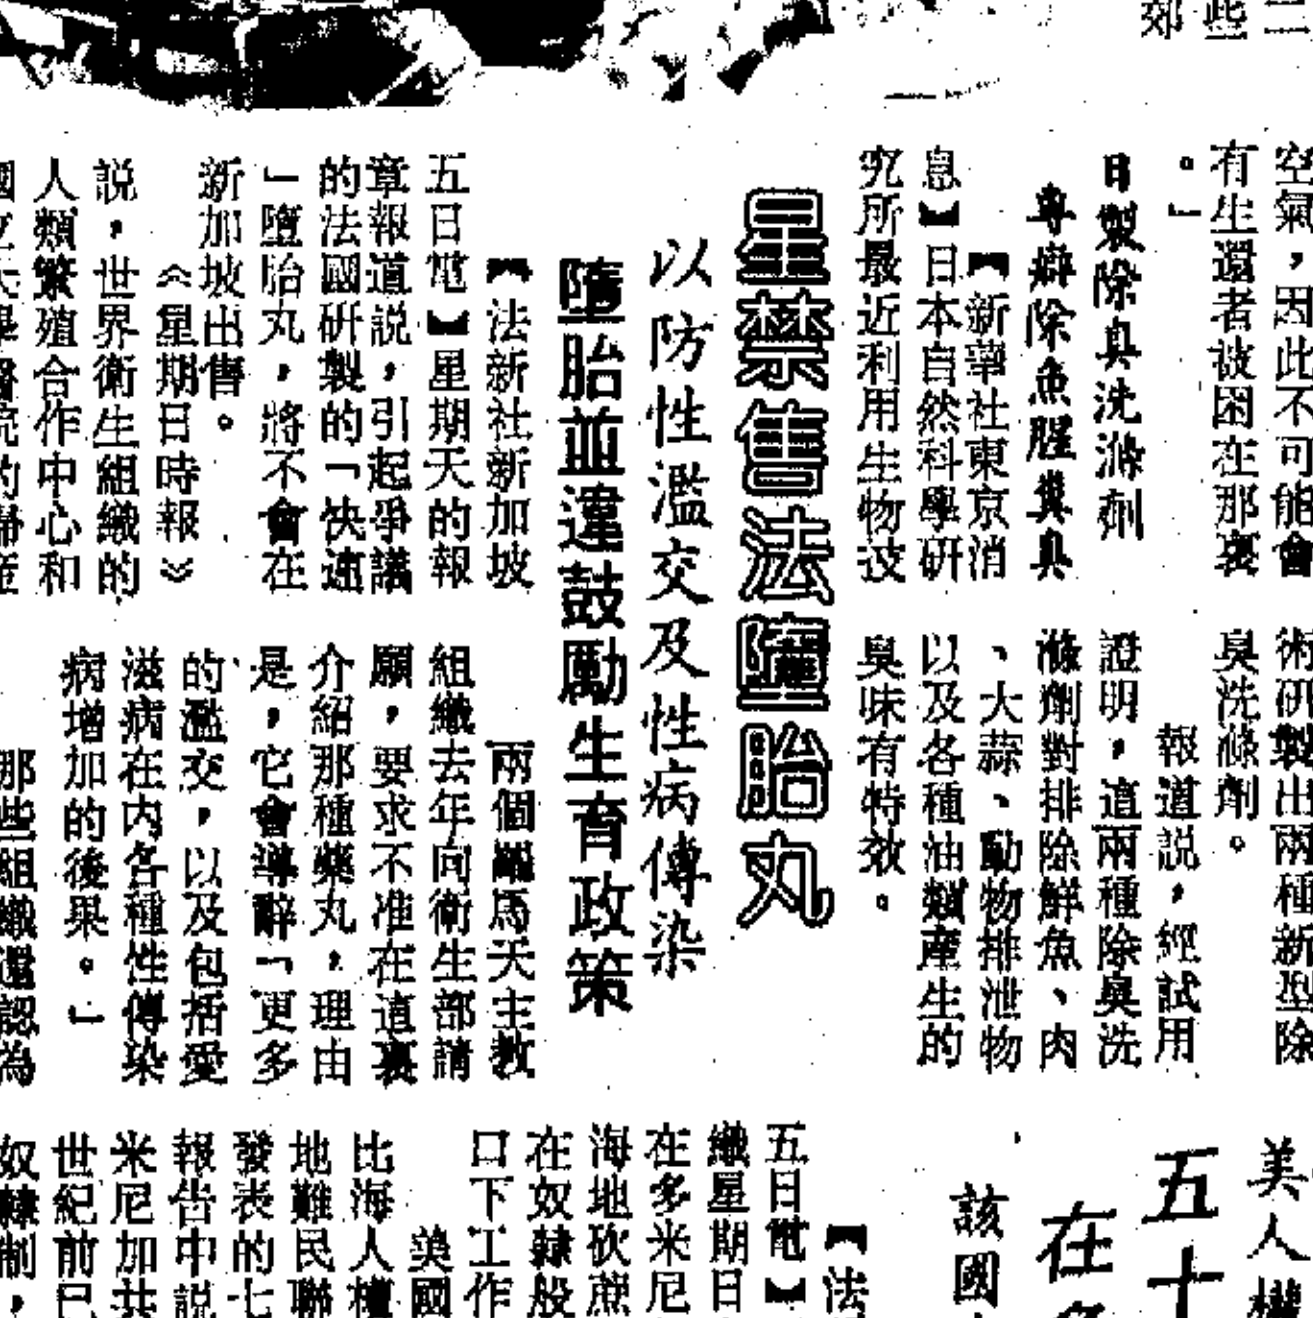 些
郊
空氣，因此不可能會
有生還者被困在那裏
。」
日製除臭洗滌劑
專辟除魚腥糞臭
【新華社東京消
息】日本自然科學研
究所最近利用生物技
術研製出兩種新型除
臭洗滌劑。
報道説，經試用
證明，這兩種除臭洗
滌劑對排除鮮魚、肉
、大蒜、動物排泄物
以及各種油類產生的
臭味有特效。
星禁售法墮胎丸
以防性濫交及性病傳染
墮胎並違鼓勵生育政策
【法新社新加坡
五日電】星期天的報
章報道説，引起爭議
的法國研製的「快速
」墮胎丸，將不會在
新加坡出售。
《星期日時報》
説，世界衛生組織的
人類繁殖合作中心和
國立大學醫院的婦產
兩個羅馬天主教
組織去年向衛生部請
願，要求不准在這裏
介紹那種藥丸，理由
是，它會導辭「更多
的濫交，以及包括愛
滋病在内各種性傳染
病增加的後果。」
那些組織還認為
美人權
五十
在
該國
【法
五日電】
織星期日
在多米尼
海地砍蔗
在奴隸般
口下工作
美國
比海人權
地難民聯
發表的七
報告中説
米尼加共
世紀前已
奴隸制，